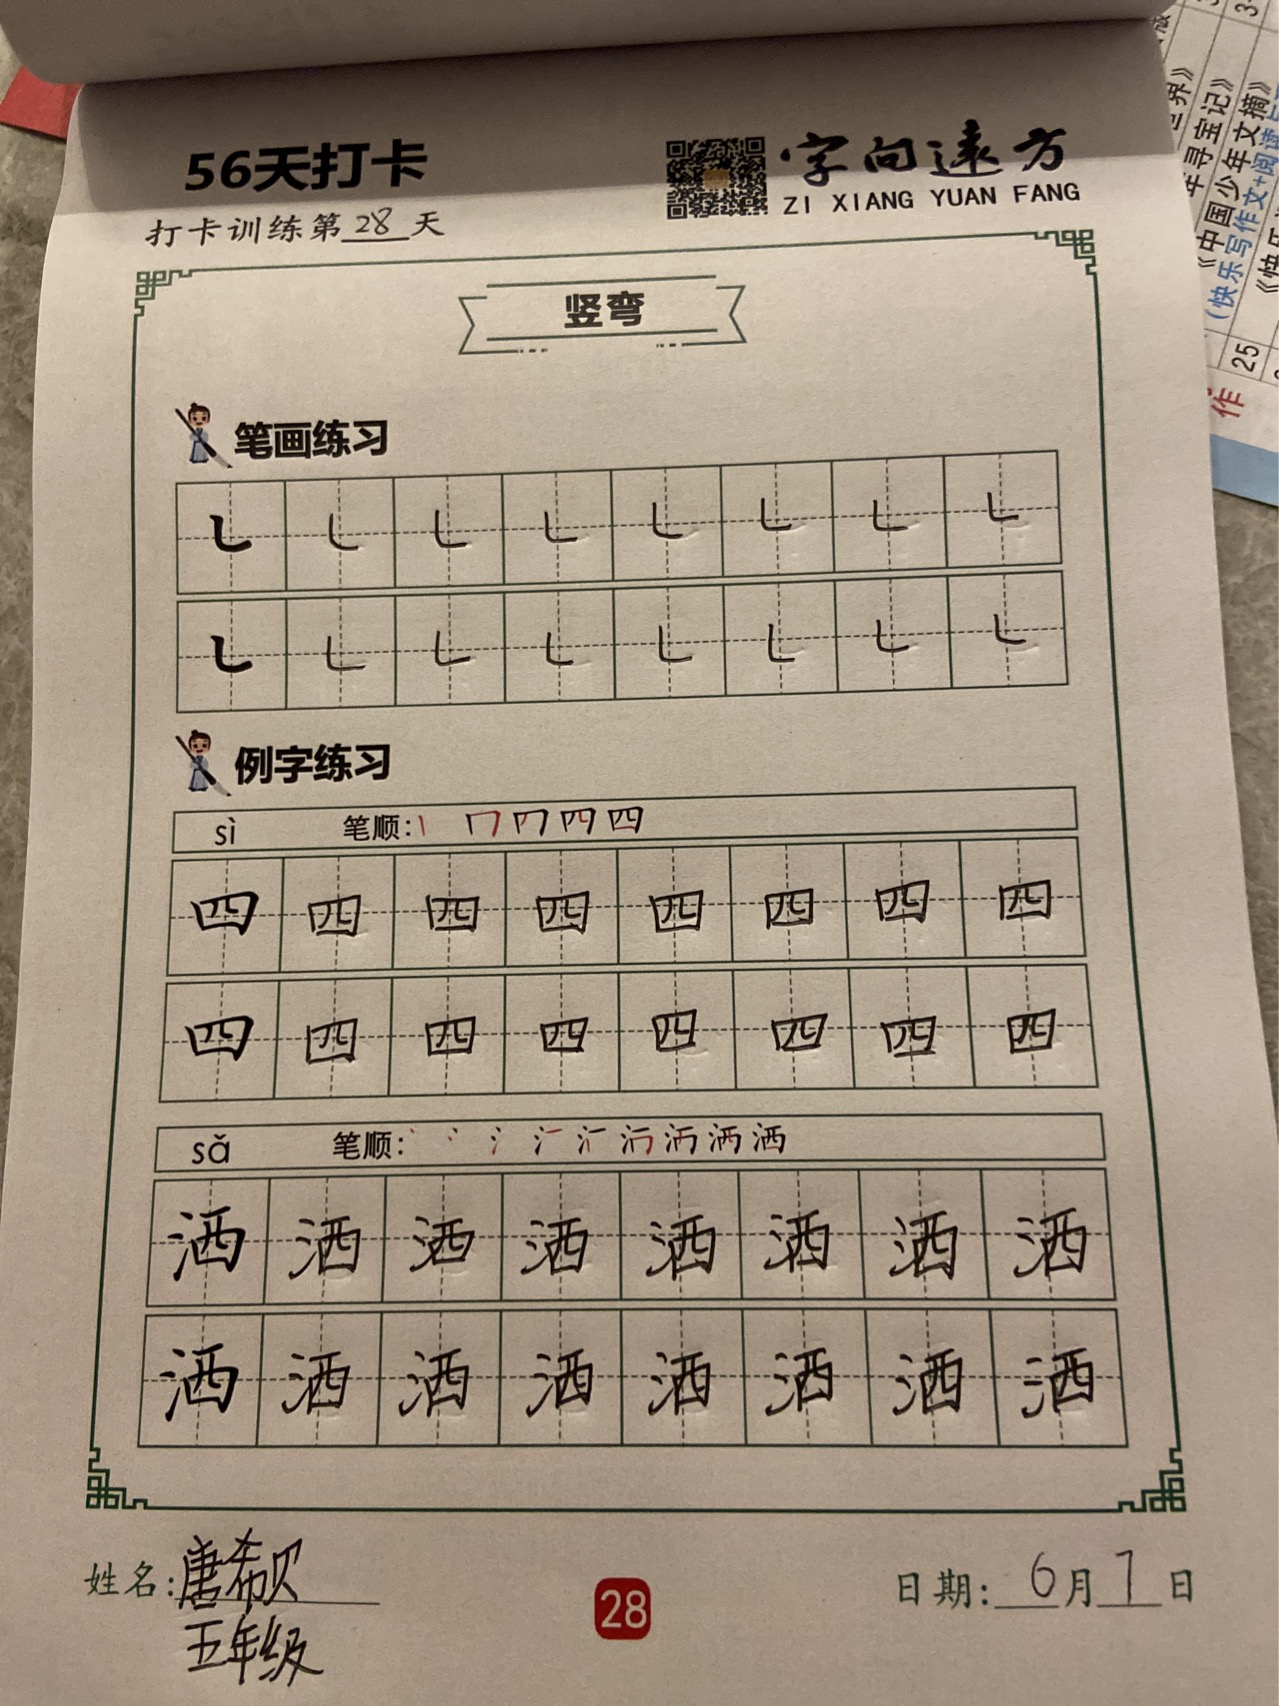 56天打卡
字向远方
ZI XIANG YUAN FANG
打卡训练第28天
竖弯
笔画练习
㇄ ㇄ ㇄ ㇄ ㇄ ㇄ ㇄ ㇄
㇄ ㇄ ㇄ ㇄ ㇄ ㇄ ㇄ ㇄
例字练习
sì 笔顺:
四 四 四 四 四 四 四 四
四 四 四 四 四 四 四 四
sǎ 笔顺:
洒 洒 洒 洒 洒 洒 洒 洒
洒 洒 洒 洒 洒 洒 洒 洒
姓名:唐希贝
五年级
28
日期: 6月7日
年寻宝记》
《中国少年文摘》
(快乐写作文+阅读
《快
25
作